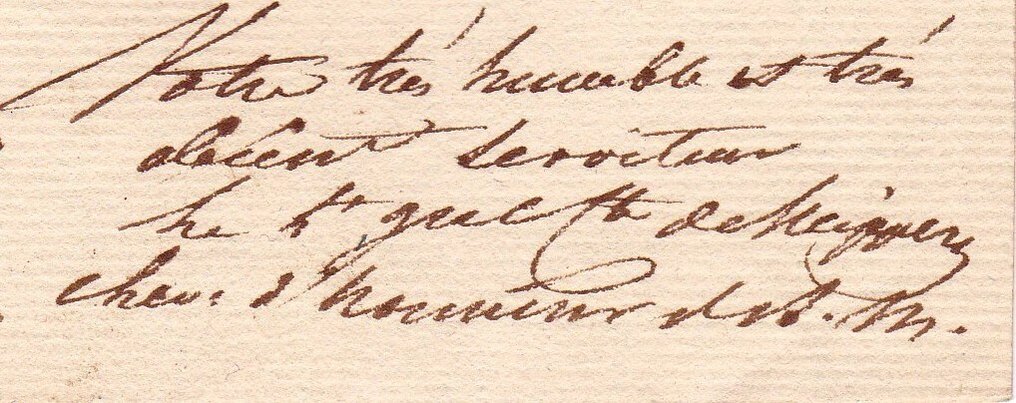 Votre très humble et très
obéissant serviteur
Le Lt gnal Cte de
chev. d'honneur de S. M.